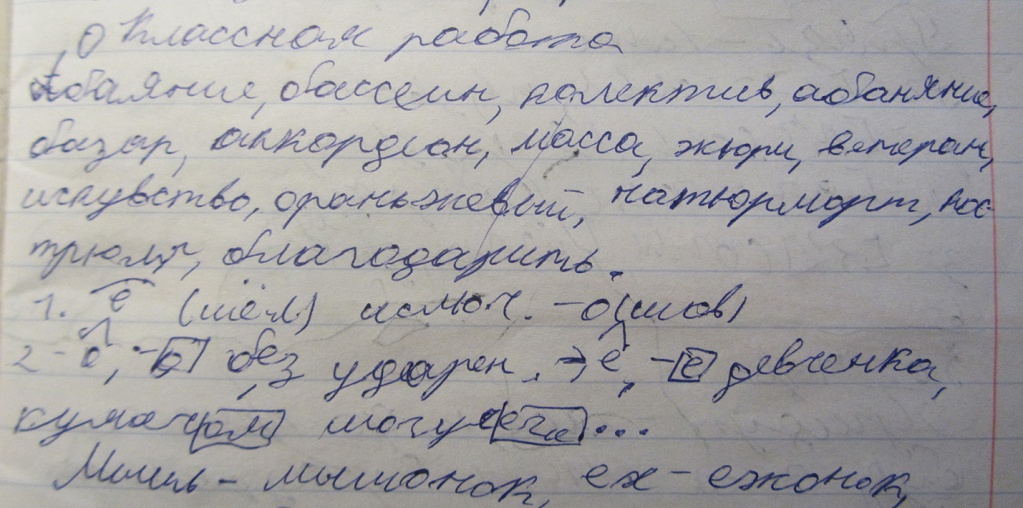 Классная работа
Обаяние, бассеин, колектив, обаняние,
базар, аккордион, масса, жюри, ветеран,
искувство, ораньжевый, натюрморт, кос-
трюля, благодарить.
1. ё (шёл) исключ. -о(шов)
2 - о, -о без ударен. → е, -е девченка,
кумачом могучего...
Мышь - мышонок, еж - ежонок,